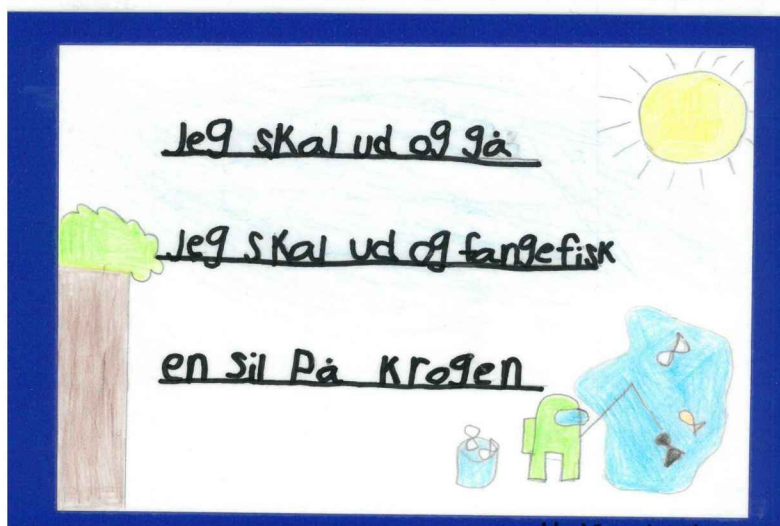 Jeg skal ud og gå
Jeg skal ud og fange fisk
en sil på krogen